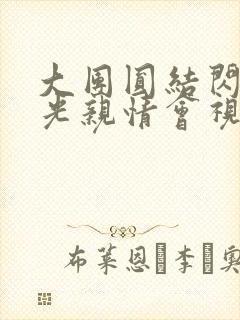 大團圓結閃
光親情會視
布萊恩�李�奧